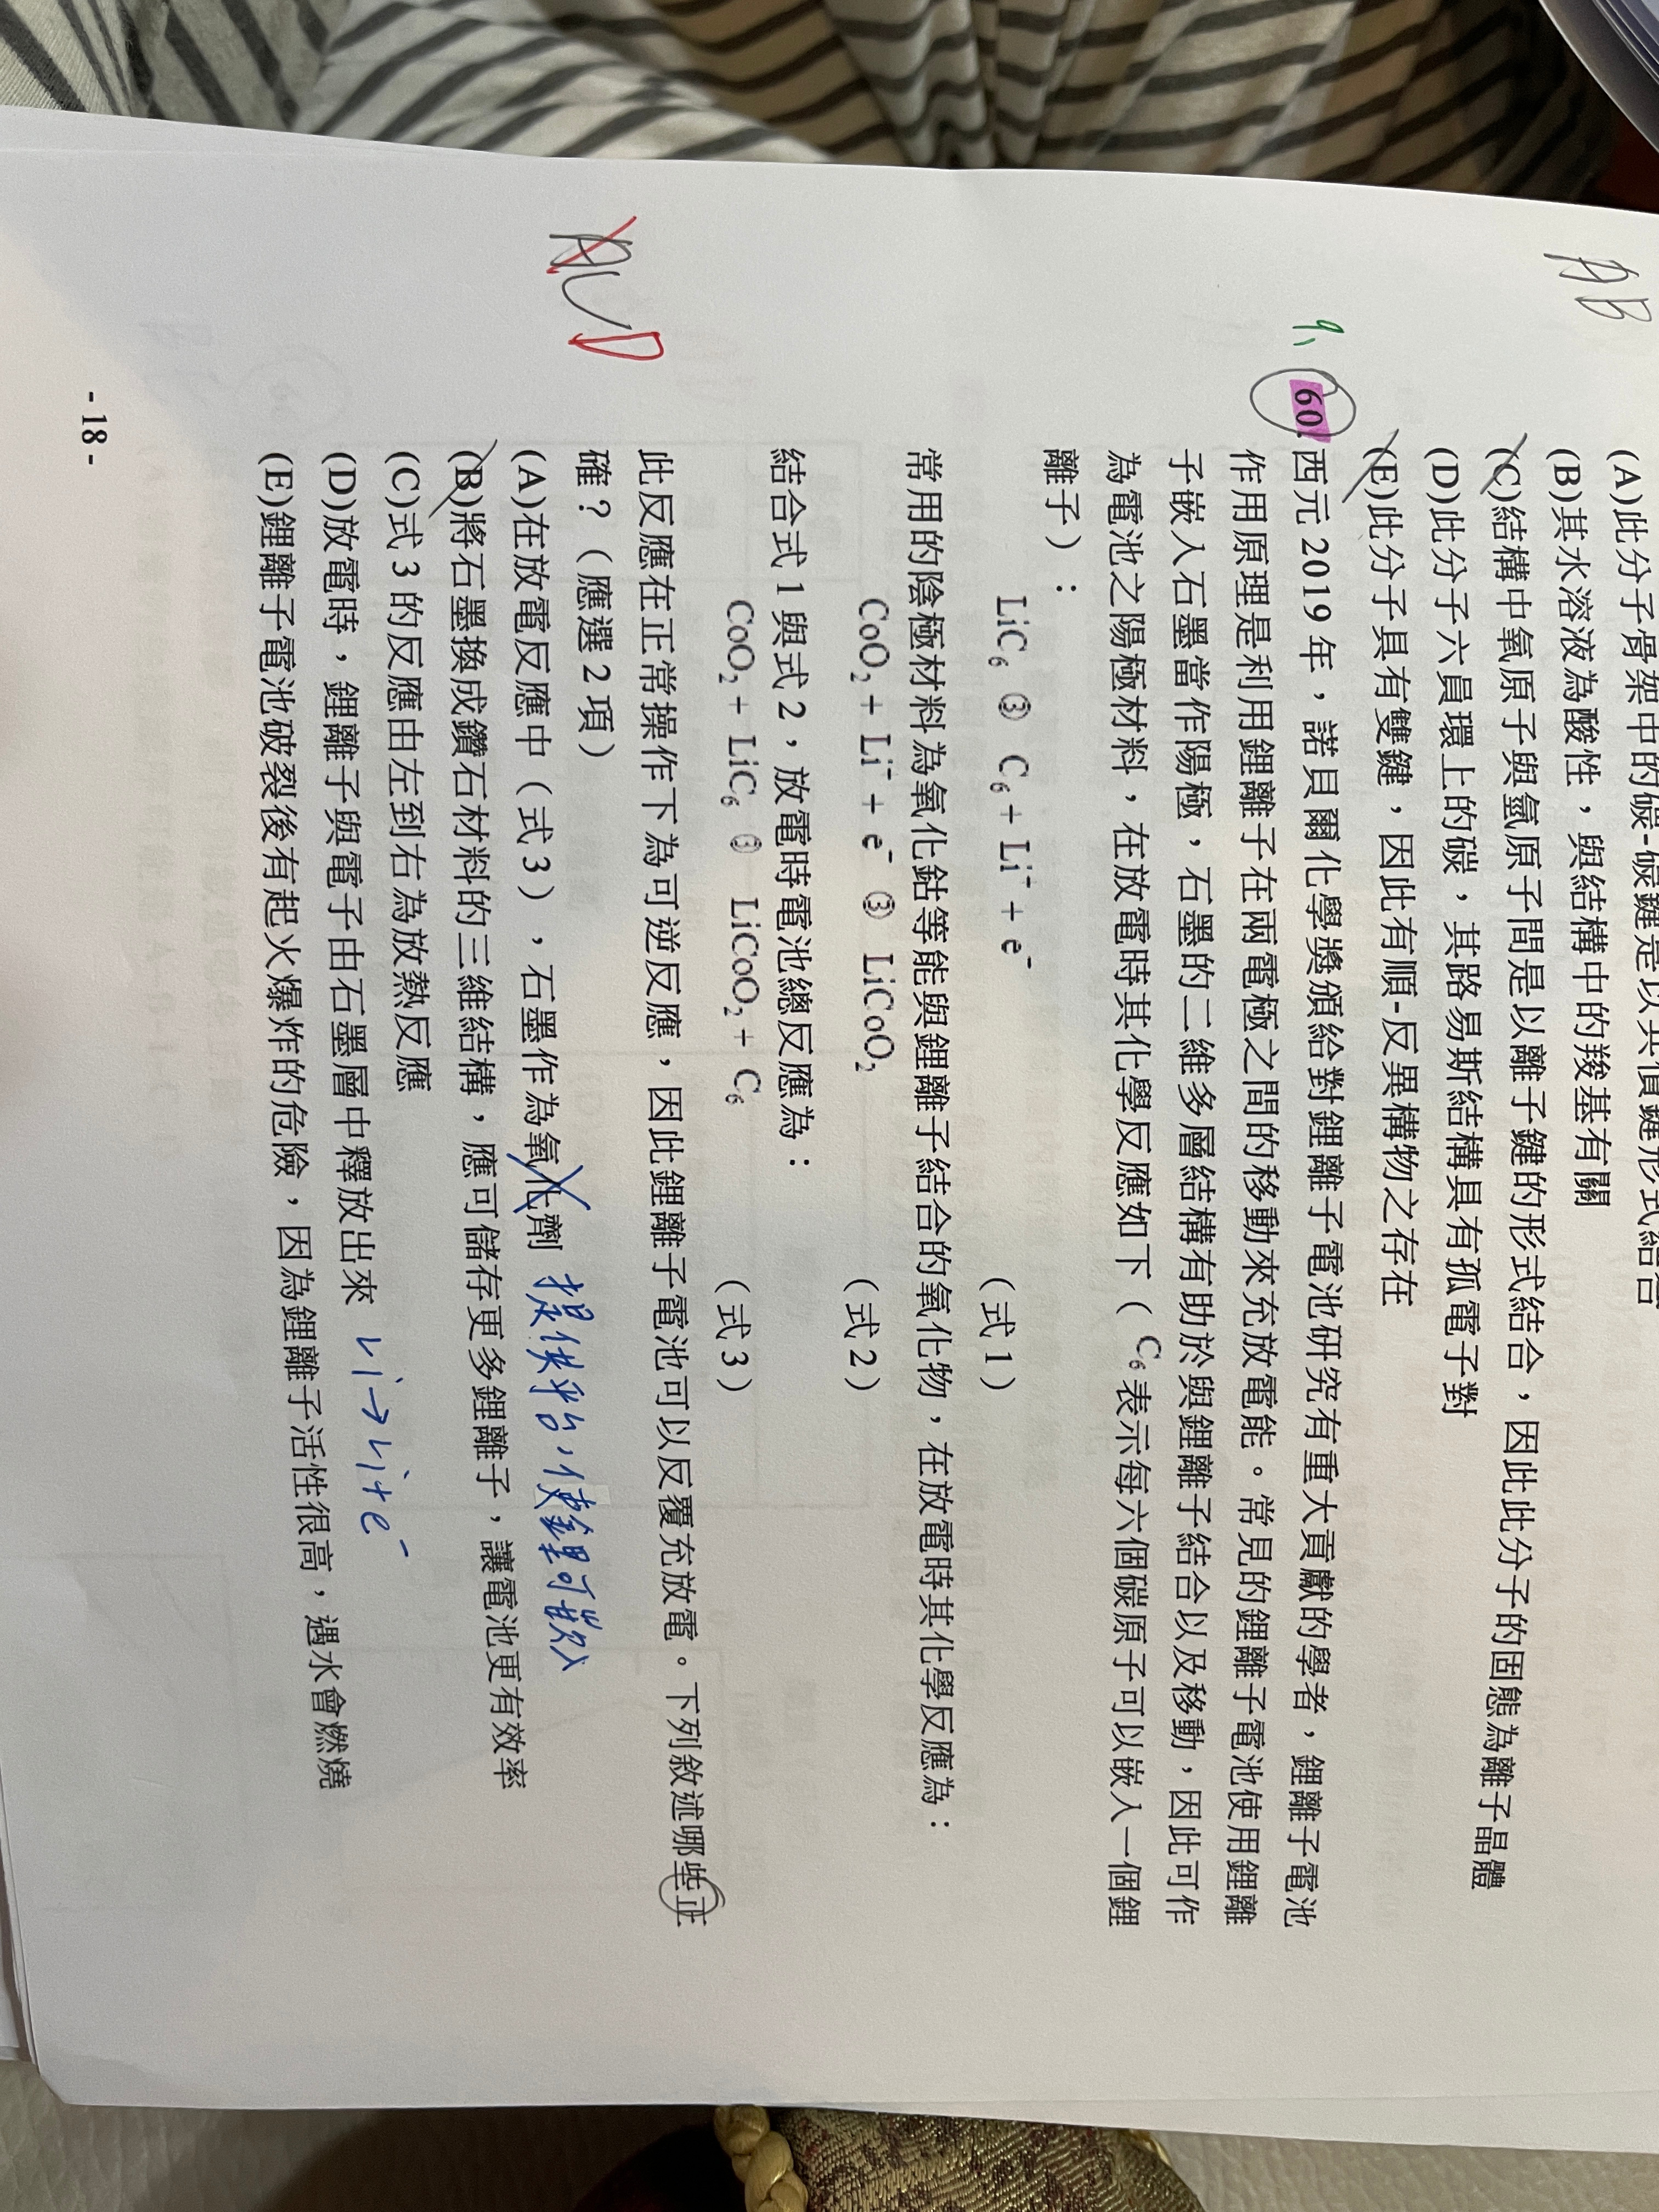 (A)此分子骨架中的碳-碳鍵是以共價鍵形式結合
AB
(B)其水溶液為酸性，與結構中的羧基有關
(C)結構中氧原子與氫原子間是以離子鍵的形式結合，因此此分子的固態為離子晶體
(D)此分子六員環上的碳，其路易斯結構具有孤電子對
(E)此分子具有雙鍵，因此有順-反異構物之存在
9、
60.西元 2019 年，諾貝爾化學獎頒給對鋰離子電池研究有重大貢獻的學者，鋰離子電池
作用原理是利用鋰離子在兩電極之間的移動來充放電能。常見的鋰離子電池使用鋰離
子嵌入石墨當作陽極，石墨的二維多層結構有助於與鋰離子結合以及移動，因此可作
為電池之陽極材料，在放電時其化學反應如下（C₆表示每六個碳原子可以嵌入一個鋰
離子）：
LiC₆ ③ C₆ + Li⁺ + e⁻ （式 1）
常用的陰極材料為氧化鈷等能與鋰離子結合的氧化物，在放電時其化學反應為：
CoO₂ + Li⁺ + e⁻ ③ LiCoO₂ （式 2）
結合式 1 與式 2，放電時電池總反應為：
CoO₂ + LiC₆ ③ LiCoO₂ + C₆ （式 3）
此反應在正常操作下為可逆反應，因此鋰離子電池可以反覆充放電。下列敘述哪些正
確？（應選 2 項）
ACD
(A)在放電反應中（式 3），石墨作為氧化劑 提供平台，使鋰可嵌入
(B)將石墨換成鑽石材料的三維結構，應可儲存更多鋰離子，讓電池更有效率
(C)式 3 的反應由左到右為放熱反應
(D)放電時，鋰離子與電子由石墨層中釋放出來 Li→Li+e⁻
(E)鋰離子電池破裂後有起火爆炸的危險，因為鋰離子活性很高，遇水會燃燒
- 18 -